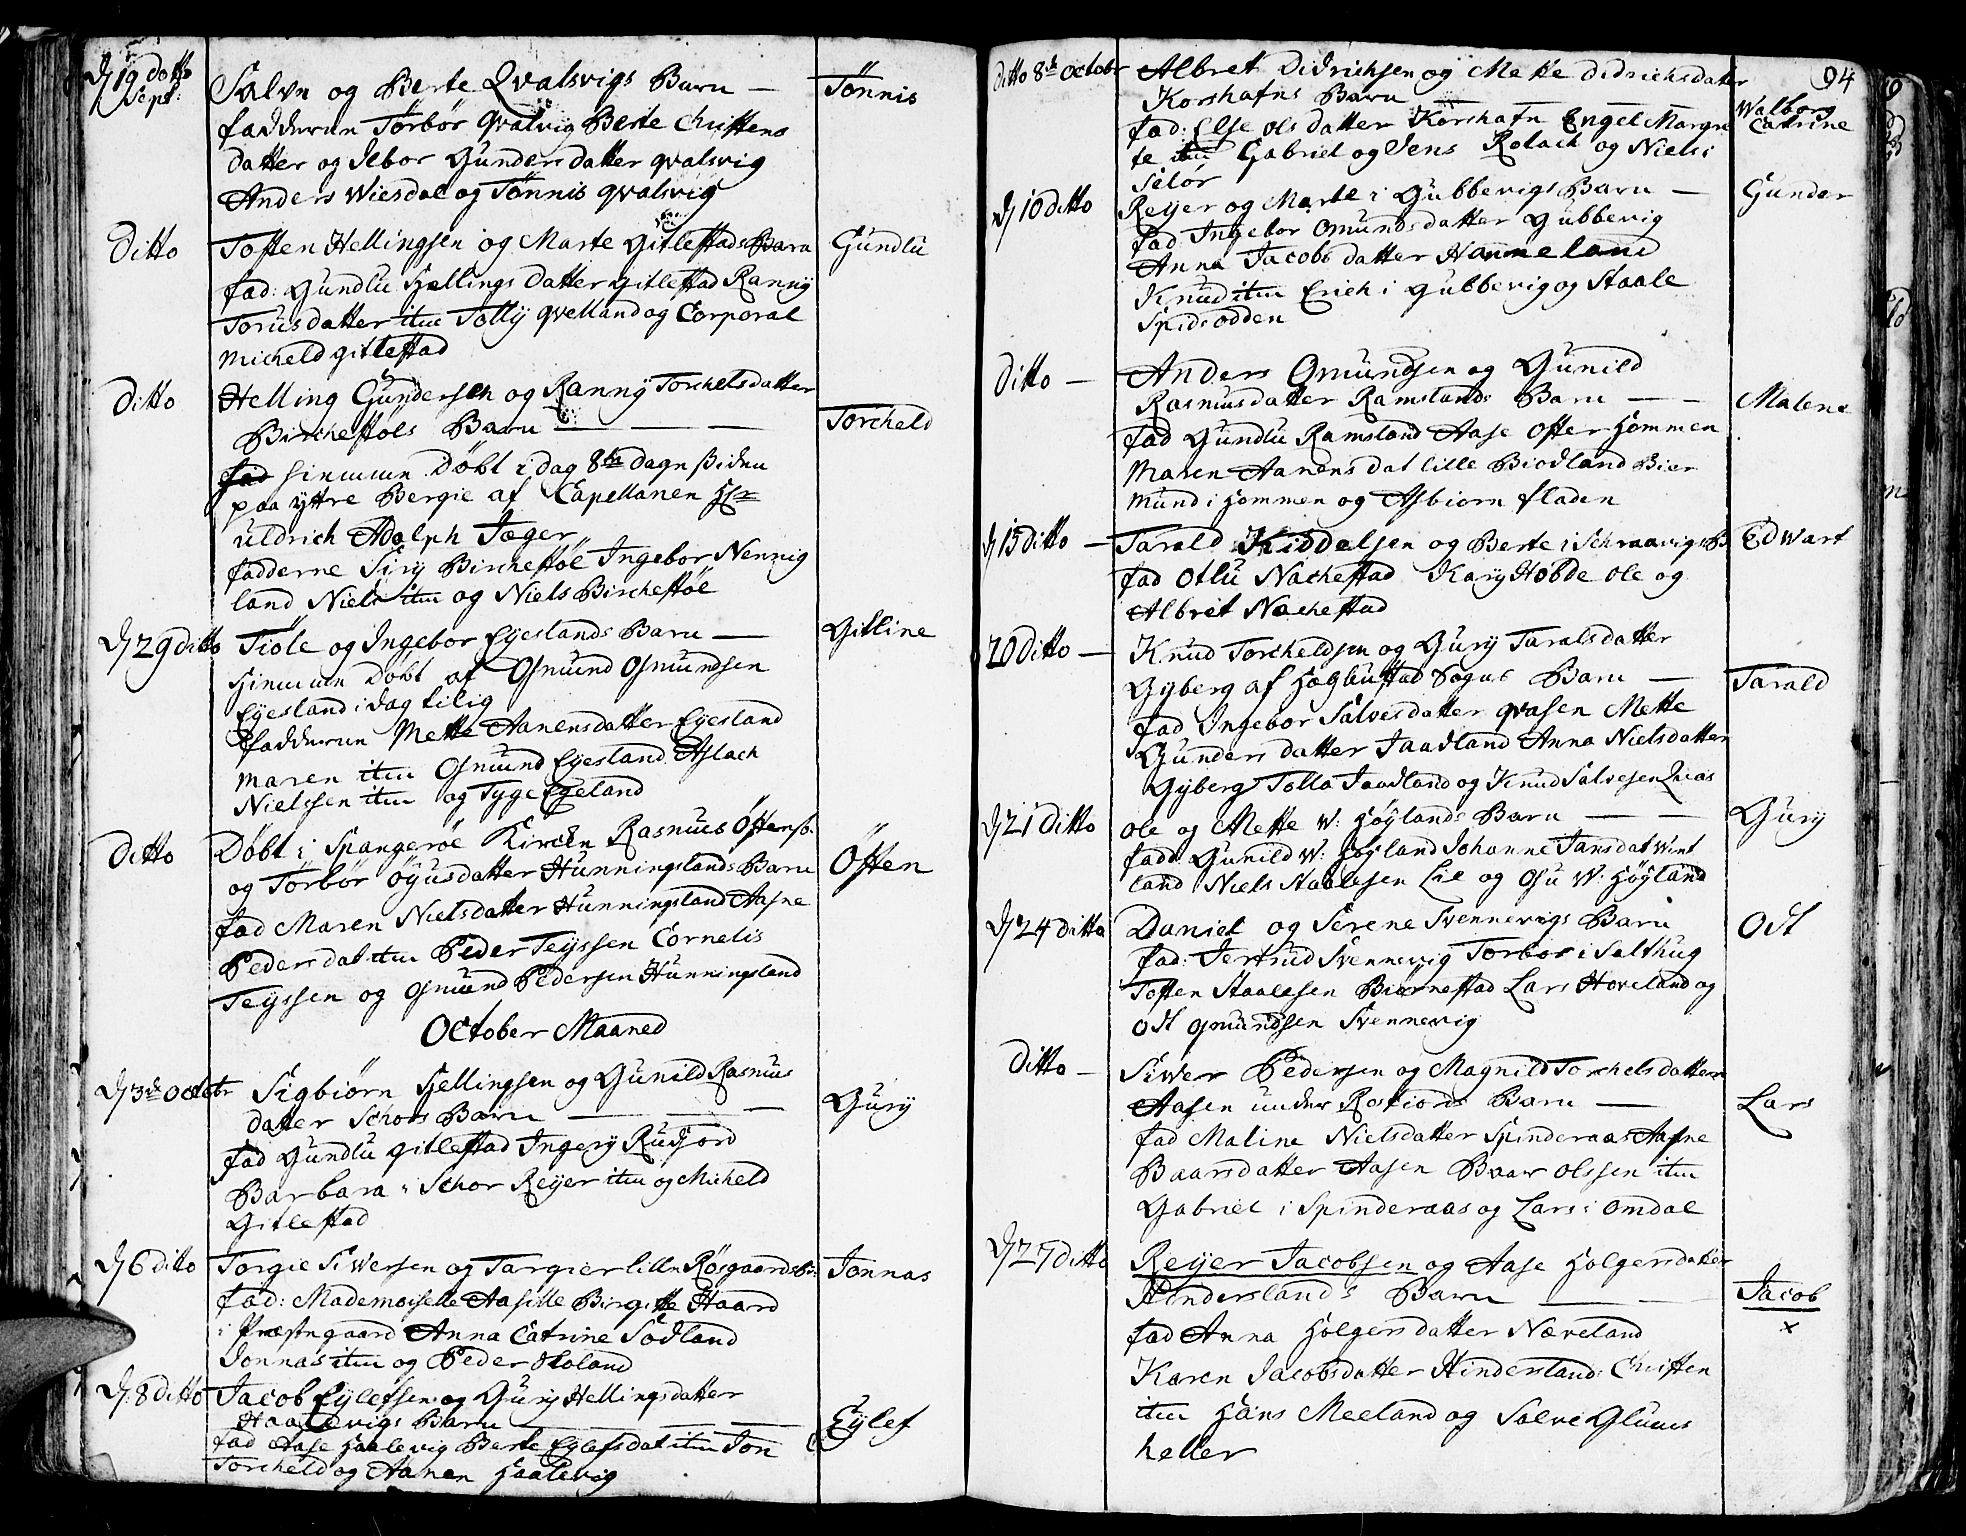 D 19 ditto
Sept:
Salve og Berte Qvalsvigs Barn — Tönnis
fadderne Törbör Qvalvig Berte Christens
datter og Ilbor Gunders datter qvalsvig
Anders Wiesdal og Tönnis qvalsvig
Ditto Tosten Hellingsen og Marte Gitlestads Barn Gundlu
fad: Gundlu Hellings datter gitlestad Ranny
Torusdatter item Tolly qvelland og Corporal
Micheld gitlestad
Ditto Helling Gundersen og Ranny Torchelsdatter
Birchestöls Barn — — — Torcheld
hiemme Döbt i dag 8te dagen siden
paa yttre Bergie af Capellanen Hr
Uldrich Adolph Jæger
fadderne Siry Birchestöl Ingebor Nennig
land Niels item og Niels Birchestöl
D 29 ditto Tiöle og Ingebor Eyeslands Barn — Gitline
hiemme Döbt af Osmund Osmundsen
Eyesland i dag tilig
fadderne Mette Aanensdatter Eyesland
Maren item Osmund Eyesland Aslach
Nielssen item og Tyge Egeland
Ditto Döbt i Spangeröe Kircken Rasmus Östens:
og Törbör Öyusdatter Hunningslands Barn Östen
fad Maren Nielsdatter Hunningsland Aasne
Peders dat item Peder Teyssen Cornelis
Teyssen og Osmund Pedersen Hunningsland
October Maaned
D 3de Octobr Sigbiörn Hellingsen og Gunild Rasmus
datter Schors Barn — — — Gury
fad Gundlu gitlestad Ingery Rudfiord
Barbara i Schor Reyer item og Micheld
Gitlestad
D 6 ditto Torgie Siversen og Targier lille Rösgaards B: Jonnas
fad: Mademoiselle Aasille Birgitte Haard
i Præstegaard Anna Catrine Södland
Jonnas item og Peder Holand
D. 8 ditto Jacob Eylefsen og Gury Hellingsdatter
Haalevigs Barn — — Eylef
fad Aase Haalevig Berte Eylefsdat item Jon
Torcheld og Aanen Haalevig
94
Ditto 8de Octobr Albret Didrichsen og Mette didrichsdatter
Korshafns Barn — Walborg
fad: Else Ols datter Korshafn Engel Margre Catrine
te item Gabriel og Jens Rolach og Niels i
Selör
D 10 ditto Reyer og Marte i Gubbevigs Barn — Gunder
fad Ingebor Omunds datter Gubbevig
Anna Jacobs datter Hanneland
Knud item Erich i Gubbevig og Staale
Spidsodden
Ditto — Anders Omundsen og Gunild
Rasmusdatter Ramslands Barn — — Malene
fad Gundlu Ramsland Aase Öster Hommen
Maren Aanens dat lille Biodland Bier
mund i Hommen og Asbiorn fladen
D 15 ditto — Tarald Kiddelsen og Berte i Schraavigs B Edwart
fad Otlu Nachestad Kary Hobde Ole og
Albret Nachestad
20 ditto — Knud Torcheldsen og Gury Taralsdatter
Gyberg af Hægbustad Sogns Barn — Tarald
fad Ingebor Salvesdatter qvasen Mette
Gunders datter Jaadland Anna Nielsdatter
Gyberg Tolla Jaadland og Knud Salvesen
D 21 ditto Ole og Mette W: Höylands Barn — — Gury
fadd: Gunild W: Höyland Johanne Jansdat Wint
land Niels Staalesen Lie og Osu W: Höyland
D 24 ditto Daniel og Serene Svennevigs Barn Odt
fad: Jertrud Svennevig Torbor i Salthug
Tosten Staalesen Biörnestad Lars Hoveland og
Odt Gmundsen Svennevig
Ditto — Siwer Pedersen og Magnild Torchelsdatter
Aasen under Rosfiords Barn — Lars
fad Maline Nielsdatter Spinderaas Aasne
Baarsdatter Aasen Baar Olssen item
Gabriel i Spinderaas og Lars i Omdal
D 27 ditto Reyer Jacobsen og Aase Holgersdatter
Hinderslands Barn — — Jacob
x
fad Anna Holgersdatter Næveland
Karen Jacobsdatter Hindersland: Christen
item Hans Meeland og Salve Glums
heller